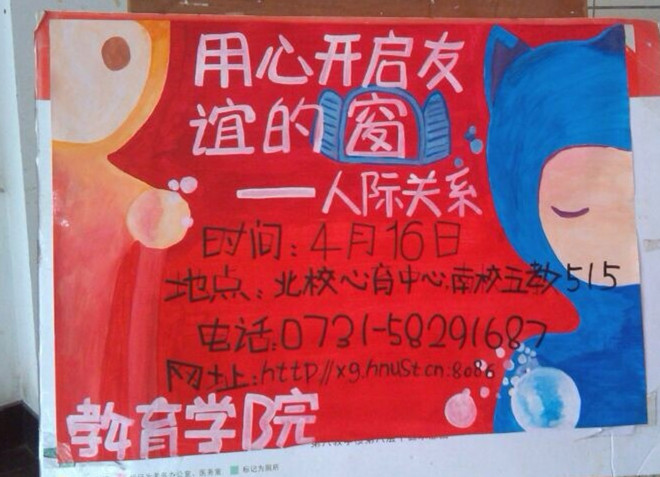 用心开启友
谊的窗
——人际关系
时间：4月16日
地点：北校心育中心.南校五教515
电话：0731-58291687
网址：http//xg.hnust.cn:8086
教育学院
标记为厕所